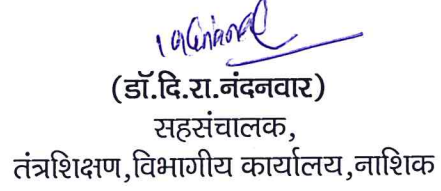 (डॉ.दि.रा.नंदनवार)
सहसंचालक,
तंत्रशिक्षण,विभागीय कार्यालय,नाशिक